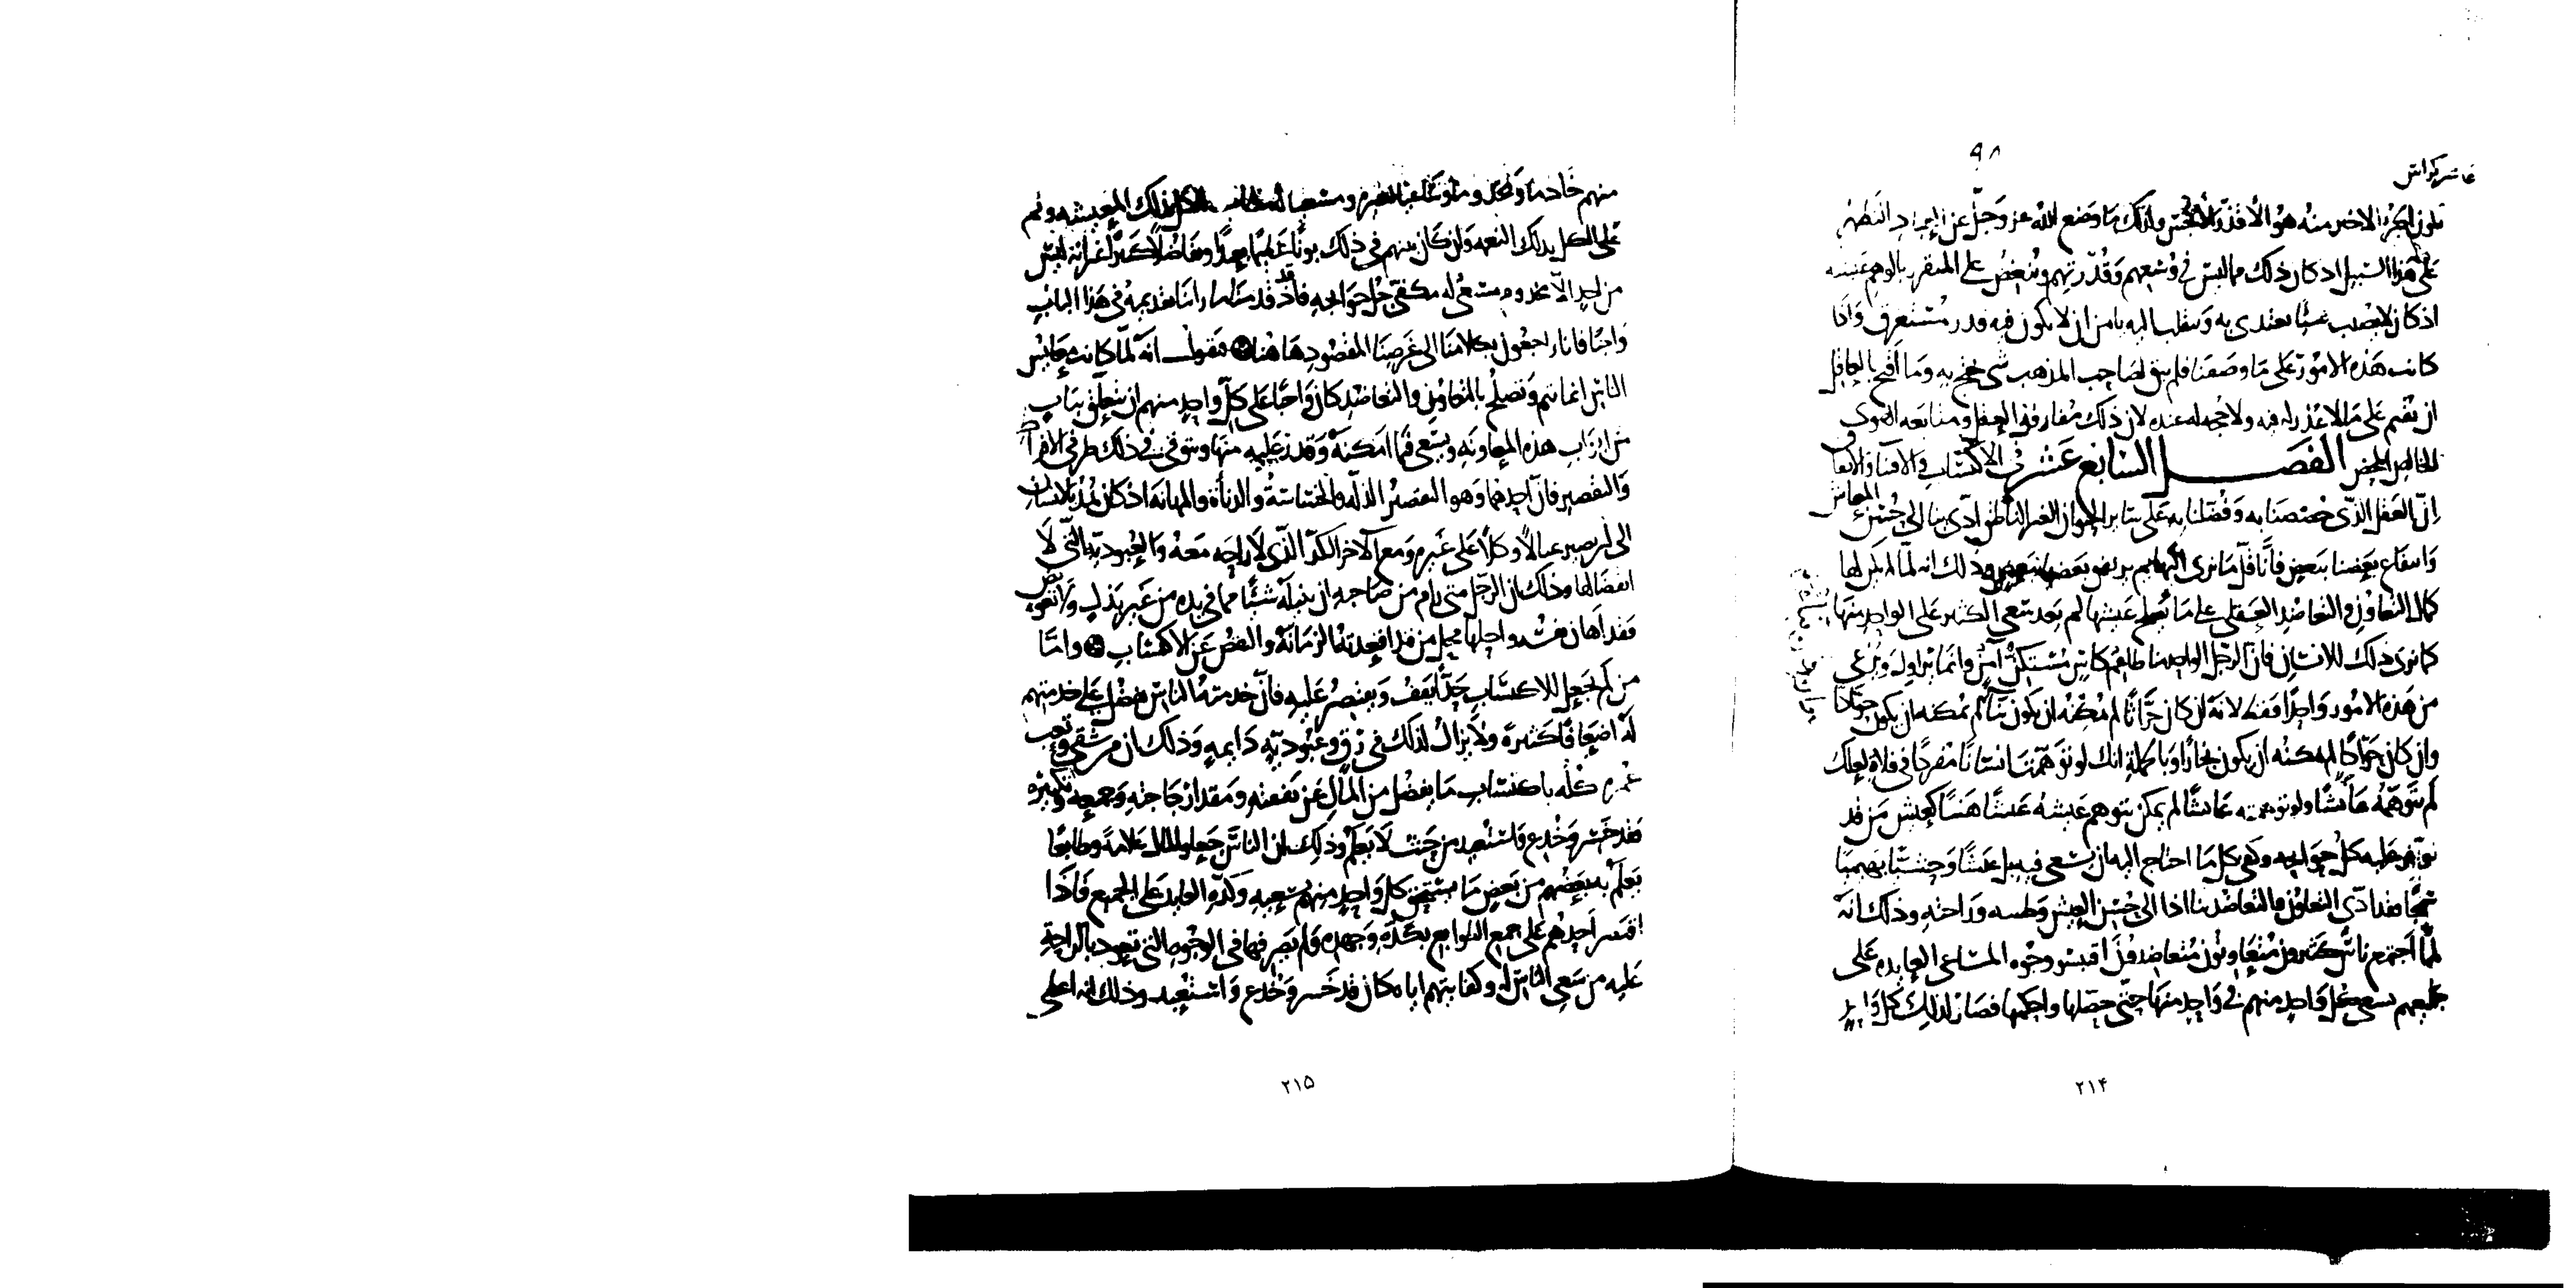 ٩٨
تكون الجزء الاخر منه هو الأقذر والأنجس ولذلك ما وضع الله عز وجل عن العباد التطهر
على هذا السبيل اذ كان ذلك مما ليس في وسعهم وقدرتهم وتنغص على المتقزز بالوهم عيشه
اذ كان لا يصيب شيئا يغتذى به ويتقلب اليه يامن ان لا يكون فيه قذر مستغرق واذا
كانت هذه الامور على ما وصفنا فلم يبق لصاحب المذهب شي يحتج به وما اقبح بالعاقل
ان يقيم على ما لا عذر له فيه ولا حجة له عنده لان ذلك مفارقة العقل ومتابعه الهوى
الخالص المحض الفصل السابع عشر في الاكتساب والاقتنا والانفاق
ان العقل الذي خصصنا به وفضلنا به على سائر الحيوان الغير الناطق ادى بنا الى حسن المعاش
وارتفاع بعضنا ببعض فانا قل ما نرى البهائم يرتفق بعضها ببعض وذلك انه لما لم يكن لها
كمال التعاون والتعاضد العقلي على ما يصلح عيشها لم يعد سعي الكثير على الواحد منها
كما نرى ذلك للانسان فان الرجل الواحد منا طاعم كاس مستكن آمن وانما يزاول ويرعى
من هذه الامور واحدا فقط لانه ان كان حراثا لم يمكنه ان يكون بناء لم يمكنه ان يكون حواكا
وان كان حواكا لم يمكنه ان يكون نجارا وبالجملة انك لو توهمت انسانا مفردا في فلاة لعلك
لم تتوهمه عائشا ولو توهمته عائشا لم يمكن تتوهم عيشه عيشا هنيا كعيش من قد
توفر عليه كل حوايجه وكفى كل ما احتاج اليه ان يسعى فيه بل عيشا وحشيا بهيميا
سمجا فقد ادى التعاون والتعاضد بنا اذا الى حسن العيش وطيبه وراحته وذلك انه
لما اجتمع ناس كثيرون متعاونون متعاضدون اقتسموا وجوه المساعى العايدة على
جميعهم يسعى كل واحد منهم في واحد منها حتى حصلها واحكمها فصار لذلك كل واحد
٢١۴
منهم خادما ومخدوما وساعيا لغيره ومسعيا له فطاب للكل بذلك المعيشه وتم
على الكل بذلك النعمه وان كان بينهم في ذلك بونا عظيما بعيدا وتفاضلا كثيرا غير انه ليس
من احد الا مخدوم مسعى له مكفى جل حوايجه فاذ قد قدمنا ما راينا تقديمه في هذا الباب
واجبا فانا راجعون بكلامنا الى غرضنا المقصود هاهنا فنقول انه لما كانت معايش
الناس انما تتم وتصلح بالتعاون والتعاضد كان واجبا على كل واحد منهم ان يتعلق بباب
من ابواب هذه المعاونه ويسعى فيما امكنه وقدر عليه منها ويتوقى في ذلك طرفي الافراط
والتقصير فان احدهما وهو التقصير الذلة والخساسة والدناة والمهانه اذ كان يؤدي بالانسان
الى ان يصير عيالا وكلا على غيره ومع الاخر الكد الذي لا راحه معه والعبودية التي لا
انقضا لها وذلك ان الرجل متى رام من صاحبه ان ينيله شيئا مما في يده من غير بذل ولا تعويض
فقد اهان نفسه واحلها محل من قد اقعدته الزمانة والنقص عن الاكتساب واما
من لم يجعل للاكتساب حدا يقف ويقتصر عليه فان خدمته للناس تفضل على خدمتهم
له اضعافا كثيرة ولا يزال لذلك في رق وعبودية دايمه وذلك ان من شقي وتعب
عمره كله باكتساب ما يفضل من المال عن نفقته ومقدار حاجته وجمعه وتكثيره
فقد خسر وخدع واستعبد من حيث لا يعلم وذلك ان الناس جعلوا المال علامة وطابعا
يعلم به بعضهم من بعض ما يستحق كل واحد منهم بسعيه وكده العايد على الجميع فاذا
اختص احدهم على جمع الطوابع بكده وجهده ولم يصرفها في الوجوه التي تعود بالراحة
عليه من سعي الناس له وكفايتهم اياه كان قد خسر وخدع واستعبد وذلك انه اعطى
٢١۵